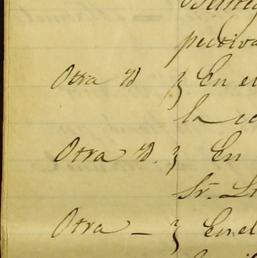 pectiva
Otra id } En el
la c
Otra id. } En
Sr. L
Otra — } En el